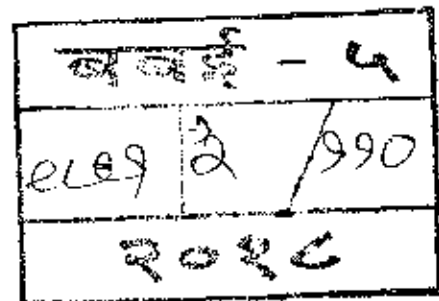 बबई - ५
७८७१ २ /११०
२०१८